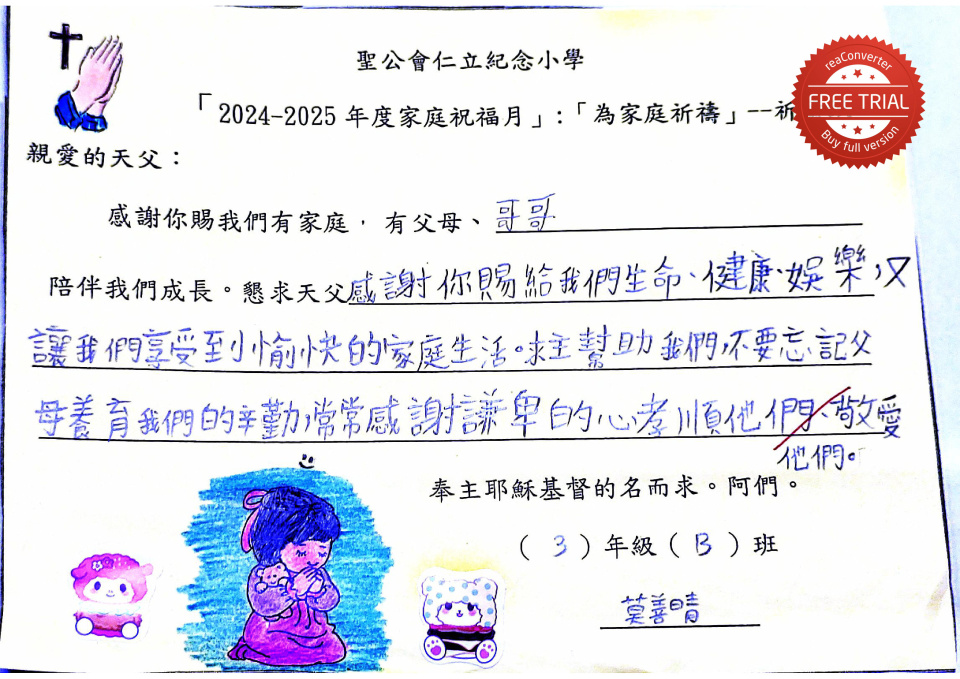 聖公會仁立紀念小學
「2024-2025 年度家庭祝福月」:「為家庭祈禱」--祈
reaConverter
FREE TRIAL
Buy full version
親愛的天父：
感謝你賜我們有家庭，有父母、哥哥
陪伴我們成長。懇求天父感謝你賜給我們生命、健康、娛樂，又
讓我們享受到愉快的家庭生活。求主幫助我們，不要忘記父
母養育我們的辛勤，常常感謝謙卑的心孝順他們、敬愛
他們。
奉主耶穌基督的名而求。阿們。
（3）年級（B）班
莫善晴